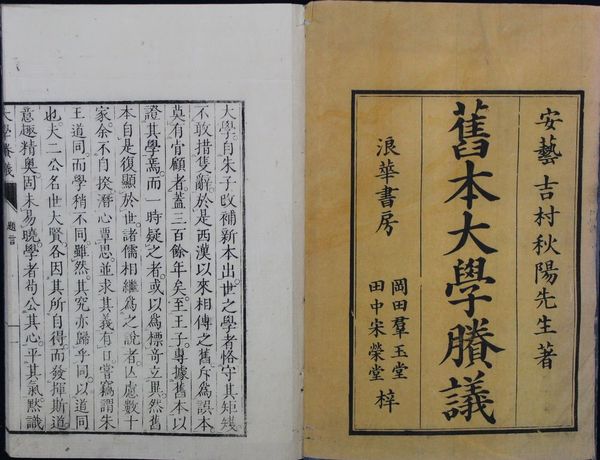 安藝 吉村秋陽先生著
舊本大學賸議
浪華書房
岡田羣玉堂
田中宋榮堂 梓
大學自朱子改補新本出。世之學者恪守其矩矱
不敢措隻辭。於是西漢以來相傳之舊。斥爲誤本
莫有肯顧者。蓋三百餘年矣。至王子。專據舊本以
證其學焉。而一時疑之者。或以爲標奇立異。然舊
本自是復顯於世。諸儒相繼爲之說者。亡慮數十
家。余不自揆。潛心覃思。並求其義有日。嘗竊謂朱
王道同而學稍不同。雖然。其究亦歸乎同。以道同
也。夫二公名世大賢。各因其所自得。而發揮斯道
意趣精奧。固未易曉。學者苟公其心。平其氣。默識
大學賸議 題言